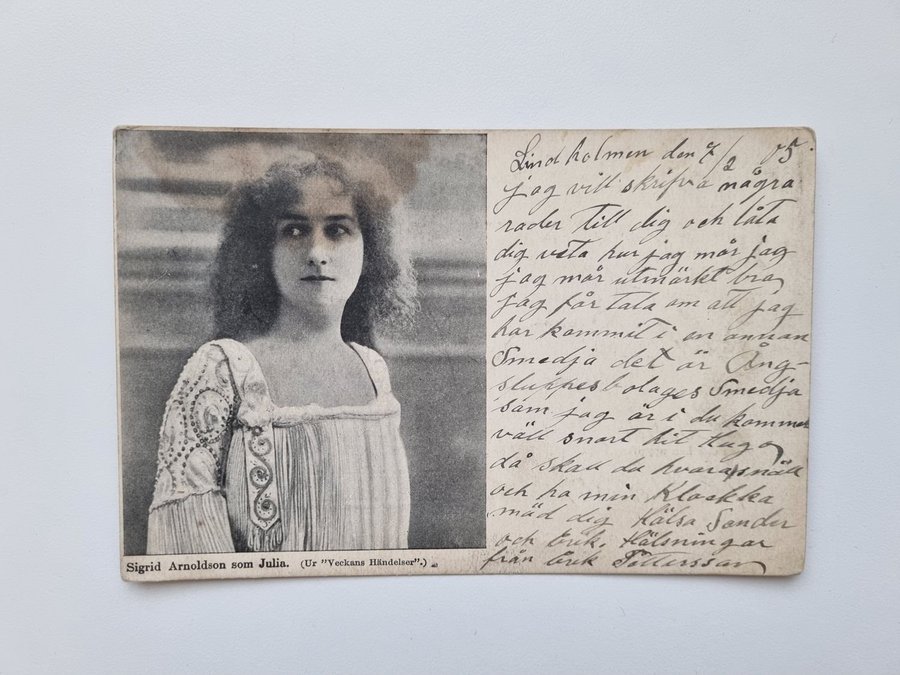 Sigrid Arnoldson som Julia. (Ur "Veckans Händelser".)
Lindholmen den 7/2 05
jag vill skrifva några
rader till dig och låta
dig veta hur jag mår jag
jag mår utmärkt bra
jag får tala om att jag
har kommit i en annan
Smedja det är Ång-
sluppesbolages Smedja
som jag är i du kommer
väll snart hit Hugo
då skall du hvara snäll
och ha min Klockka
mäd dig Hälsa Sander
och Erik. Hälsningar
från Erik